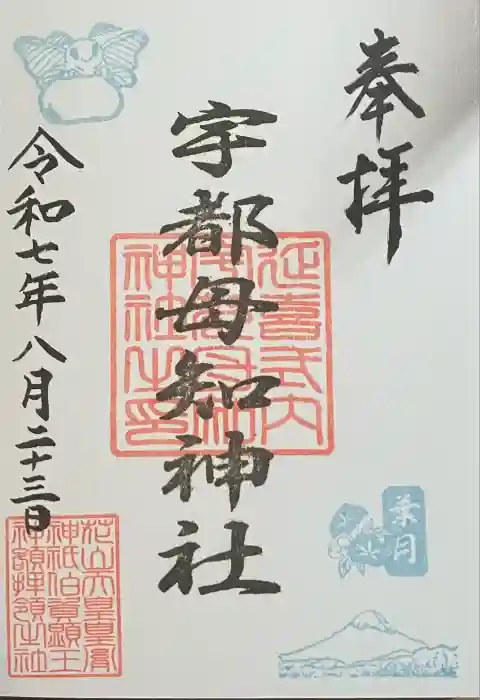 奉拝
宇都母知神社
延喜式内
宇都母知
神社之印
令和七年八月二十三日
葉月
花山天皇皇胤
神祇伯資顕王
神額拝領之社